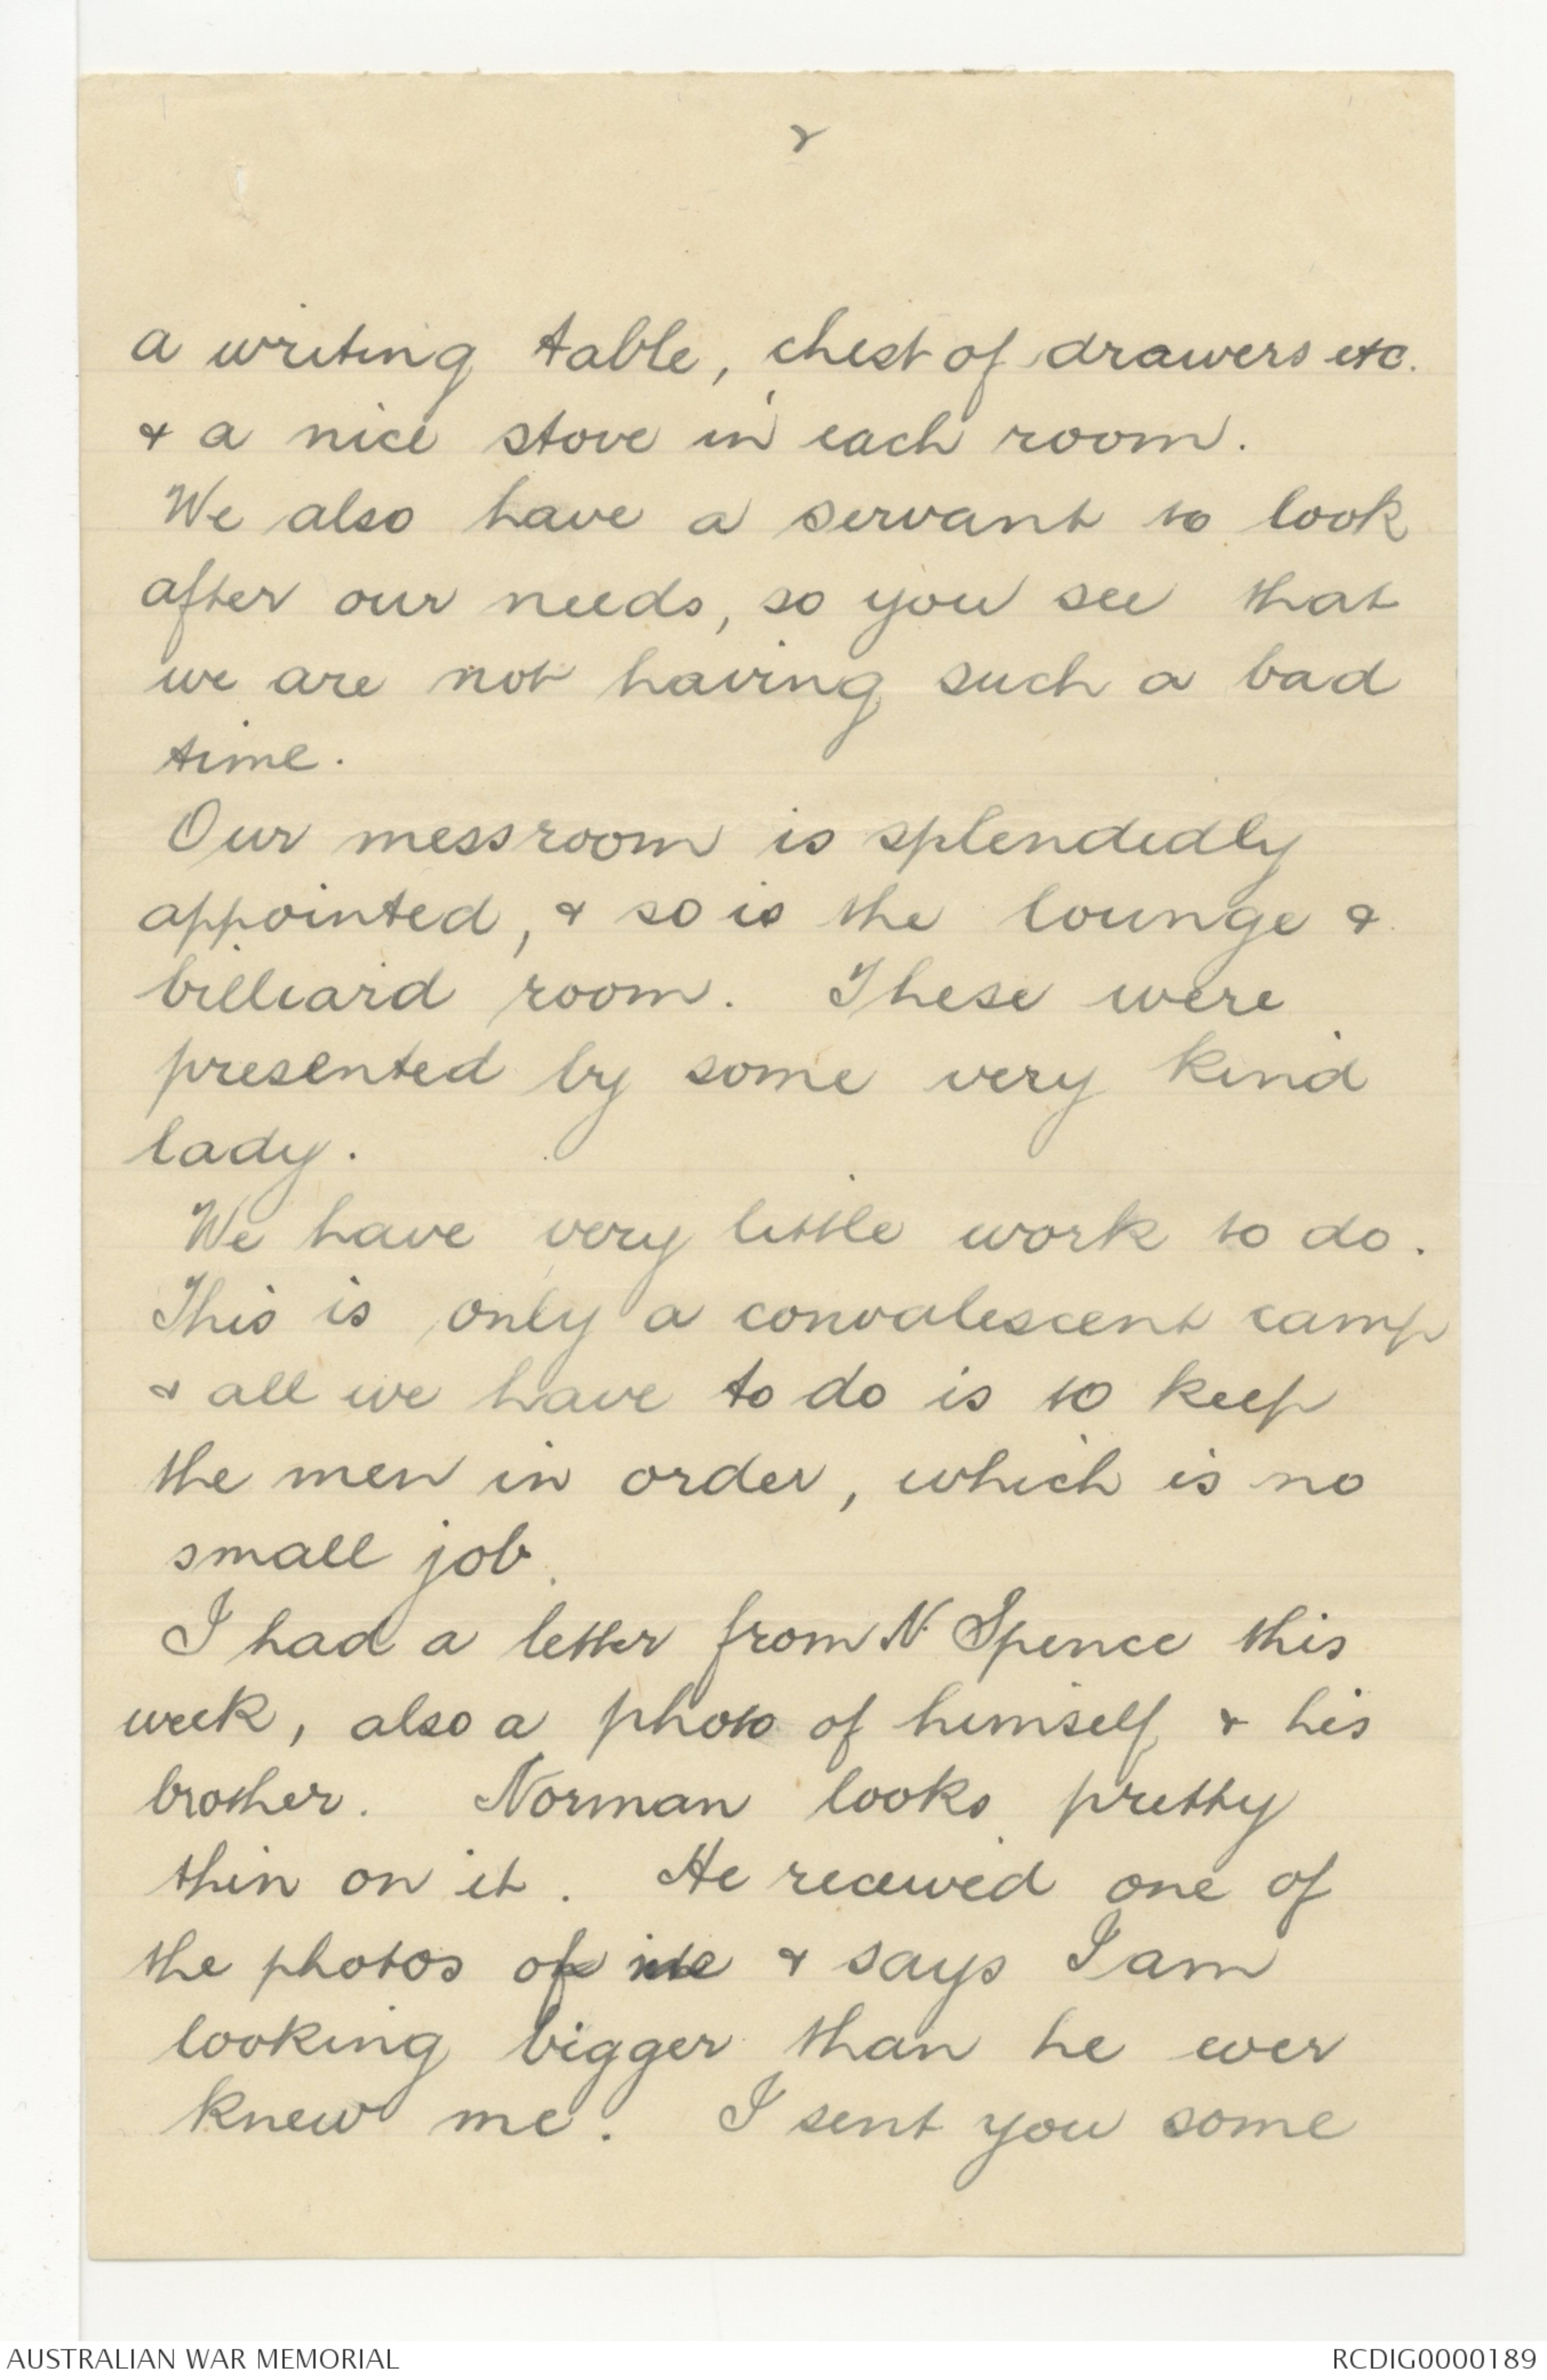 2
a writing table, chest of drawers etc.
& a nice stove in each room.
We also have a servant to look
after our needs, so you see that
we are not having such a bad
time.
Our messroom is splendedly
appointed, & so is the lounge &
billiard room. These were
presented by some very kind
lady.
We have very little work to do.
This is only a convalescent camp
& all we have to do is to keep
the men in order, which is no
small job.
I had a letter from N Spence this
week, also a photo of himself & his
brother. Norman looks pretty
thin on it. He received one of
the photos of me & says I am
looking bigger than he ever
knew me. I sent you some
AUSTRALIAN WAR MEMORIAL
RCDIG0000189